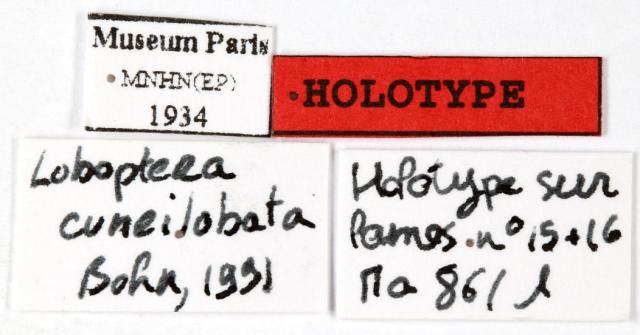 Museum Paris
MNHN(EP)
1934
HOLOTYPE
Loboptera
cuneilobata
Bohn, 1991
Holotype sur
lames n° 15+16
Ma 86/1